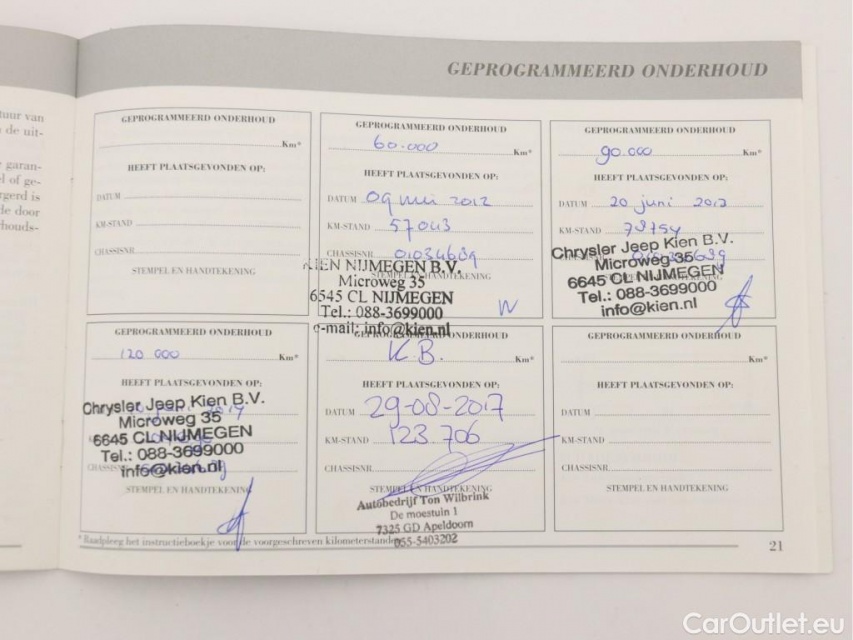 GEPROGRAMMEERD ONDERHOUD
tuur van
de uit-
garan-
el of ge-
rgerd is
de door
houds-
GEPROGRAMMEERD ONDERHOUD
Km*
HEEFT PLAATSGEVONDEN OP:
DATUM
KM-STAND
CHASSISNR.
STEMPEL EN HANDTEKENING
GEPROGRAMMEERD ONDERHOUD
60.000 Km*
HEEFT PLAATSGEVONDEN OP:
DATUM 09 mei 2012
KM-STAND 57043
CHASSISNR.
STEMPEL EN HANDTEKENING
KIEN NIJMEGEN B.V.
Microweg 35
6545 CL NIJMEGEN
Tel.: 088-3699000
e-mail: info@kien.nl
GEPROGRAMMEERD ONDERHOUD
90.000 Km*
HEEFT PLAATSGEVONDEN OP:
DATUM 20 juni 2013
KM-STAND
Chrysler Jeep Kien B.V.
Microweg 35
6645 CL NIJMEGEN
Tel.: 088-3699000
info@kien.nl
GEPROGRAMMEERD ONDERHOUD
120 000 Km*
HEEFT PLAATSGEVONDEN OP:
Chrysler Jeep Kien B.V.
Microweg 35
6645 CL NIJMEGEN
Tel.: 088-3699000
info@kien.nl
STEMPEL EN HANDTEKENING
GEPROGRAMMEERD ONDERHOUD
K.B. Km*
HEEFT PLAATSGEVONDEN OP:
DATUM 29-08-2017
KM-STAND 123.706
CHASSISNR.
STEMPEL EN HANDTEKENING
Autobedrijf Ton Wilbrink
De moestuin 1
7325 GD Apeldoorn
055-5403202
GEPROGRAMMEERD ONDERHOUD
Km*
HEEFT PLAATSGEVONDEN OP:
DATUM
KM-STAND
CHASSISNR.
STEMPEL EN HANDTEKENING
* Raadpleeg het instructieboekje voor de voorgeschreven kilometerstanden.
21
CarOutlet.eu